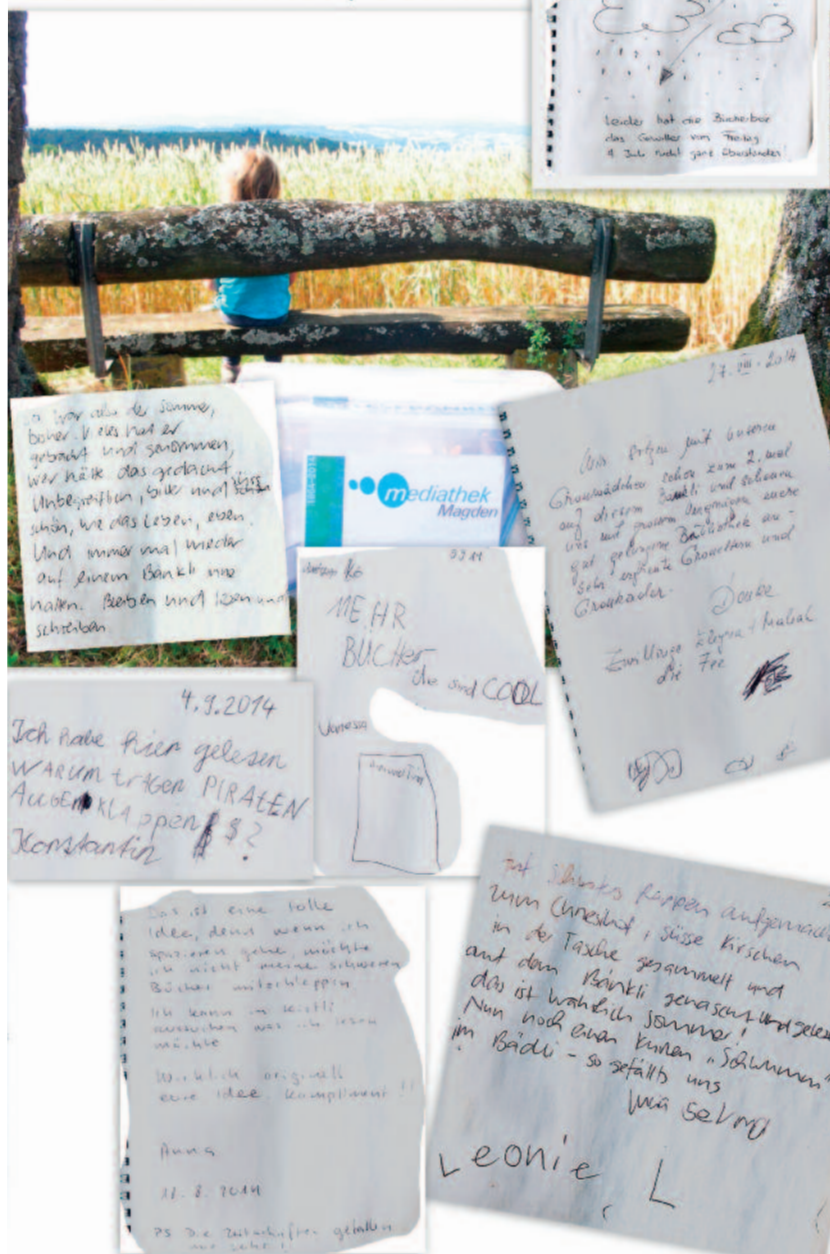 Leider hat die Bücherbox
das Gewitter vom Freitag
4. Juli nicht ganz überstanden!
war also der Sommer,
bisher. Vieles hat er
gebracht und genommen,
wer hätte das gedacht.
Unbegreiflich, bitter und
schön, wie das Leben, eben.
Und immer mal wieder
auf einem Bänkli inne
halten. Bleiben und lesen und
schreiben
1964-2014
mediathek
Magden
27. VIII. 2014
Wir sitzen mit unseren
Grossmädchen schon zum 2. mal
auf diesem Bänkli und schauen
uns mit grossem Vergnügen eure
gut gelungene Bäbliothek an -
Sehr erfreute Grosseltern und
Grosskinder.
Danke
Zwillinge + Maliah
die Fee
MEHR
BÜCHER
die sind COOL
Vanessa
4.9.2014
Ich habe hier gelesen
WARUM trAGEN PIRATEN
AUGENKLAppen $?
Konstantin
Das ist eine tolle
Idee, denn wenn ich
spazieren gehe, möchte
ich nicht meine schweren
Bücher mitschleppen.
Ich kann in
aussuchen was ich lesen
möchte
Wirklich originell
eure Idee, Kompliment !!
Anna
2014
PS Die Zeitschriften gefallen
mir sehr!!
aufgemacht
zum süsse Kirschen
in der Tasche gesammelt und
auf dem Bänkli genascht und gelesen
das ist wahrlich Sommer!
Nun noch einen kurzen „Schwumm"
im Bädli - so gefällts uns
Leonie, L